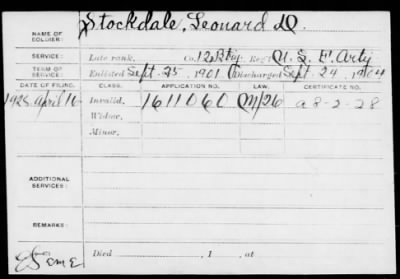 NAME OF SOLDIER: Stockdale, Leonard D.
SERVICE: Late rank, Co. 12 Btry, Reg't U. S. F. Arty
TERM OF SERVICE: Enlisted Sept. 25, 1901 Discharged Sept. 24, 1904
DATE OF FILING. CLASS. APPLICATION NO. LAW. CERTIFICATE NO.
1928 April 16 Invalid, 1611060
Widow,
Minor,
ADDITIONAL SERVICES:
REMARKS:
Died , 1 , at